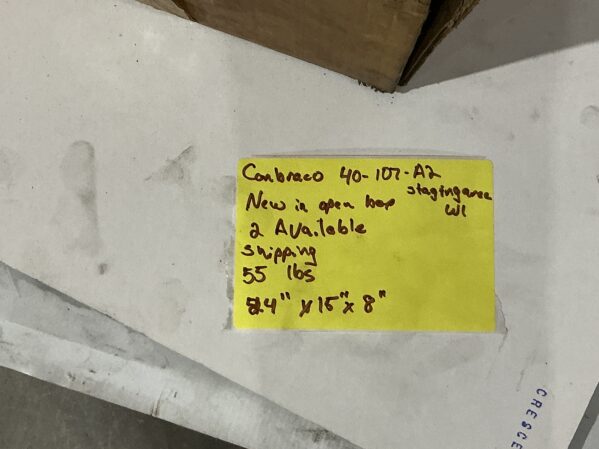 Conbraco 40-107-A2
staging area
W1
New in open box
2 Available
Shipping
55 lbs
24" x 15" x 8"
CRESCE